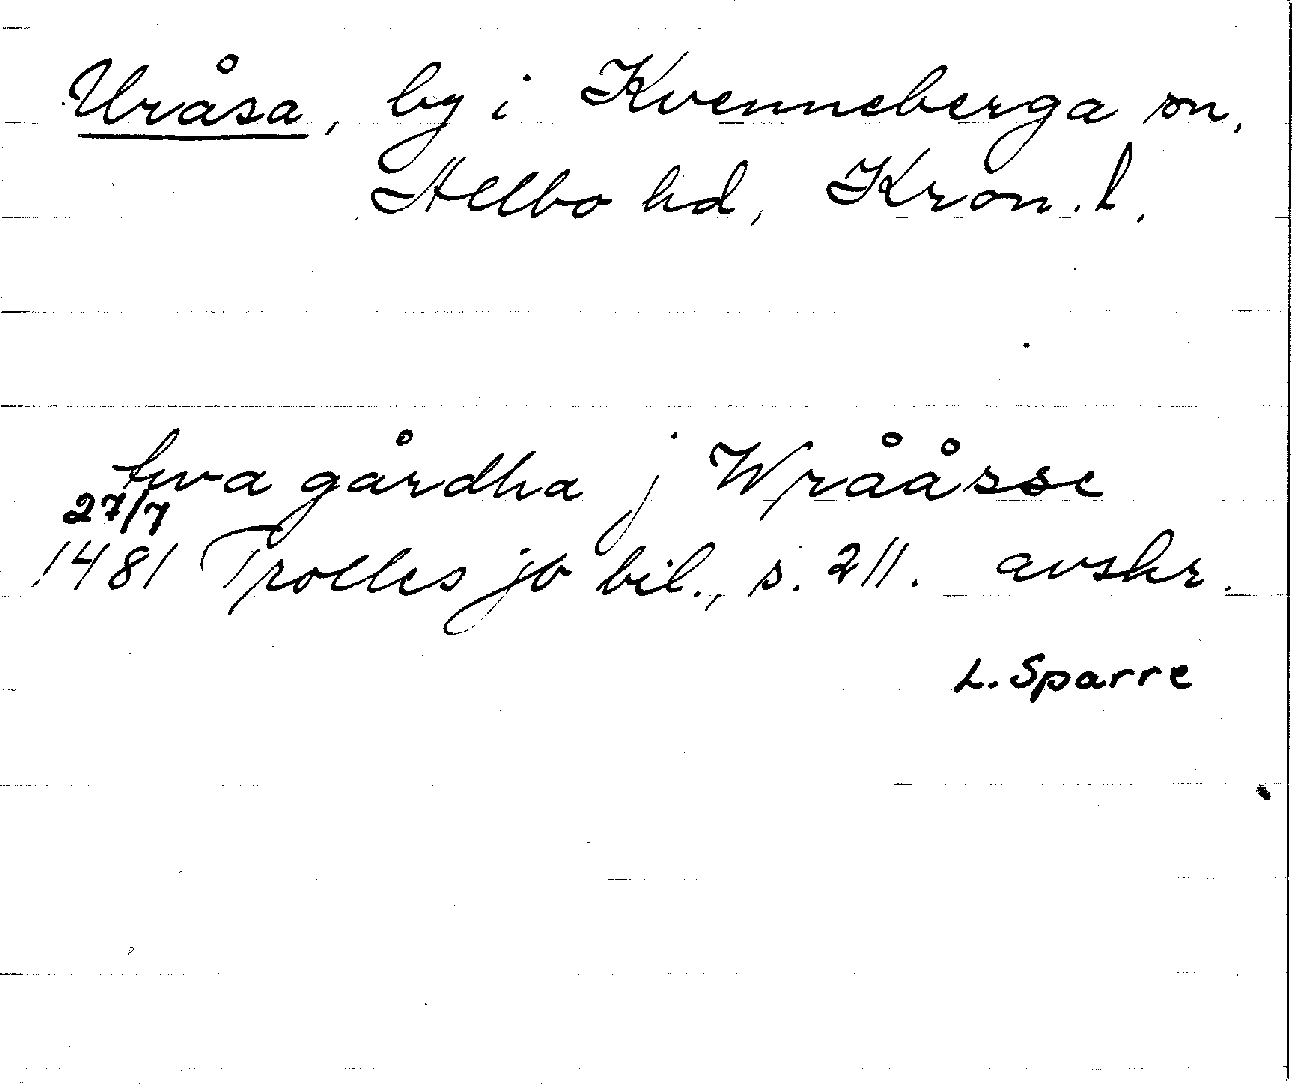 Uråsa, by i Kvenneberga sn,
Allbo hd, Kron. l.
twa gårdha j Wrååsse
27/7
1481 Trolles jb bil., s. 211. avskr.
L. Sparre